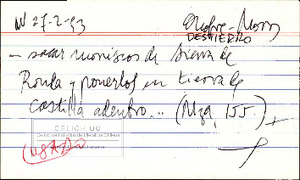 27-2-93
DESTIERRO
– sacar moriscos de Sierra de
Ronda y ponerlos en tierra de
Castilla adentro... (Alga, 155)
CELICH UC
(USADO)